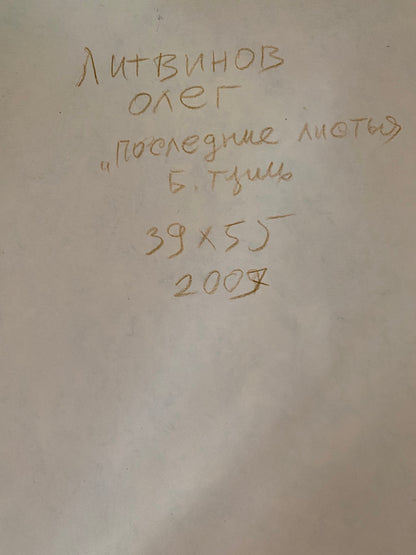 Литвинов
Олег
„Последние листья
Б. Тушь
39 х 55
200